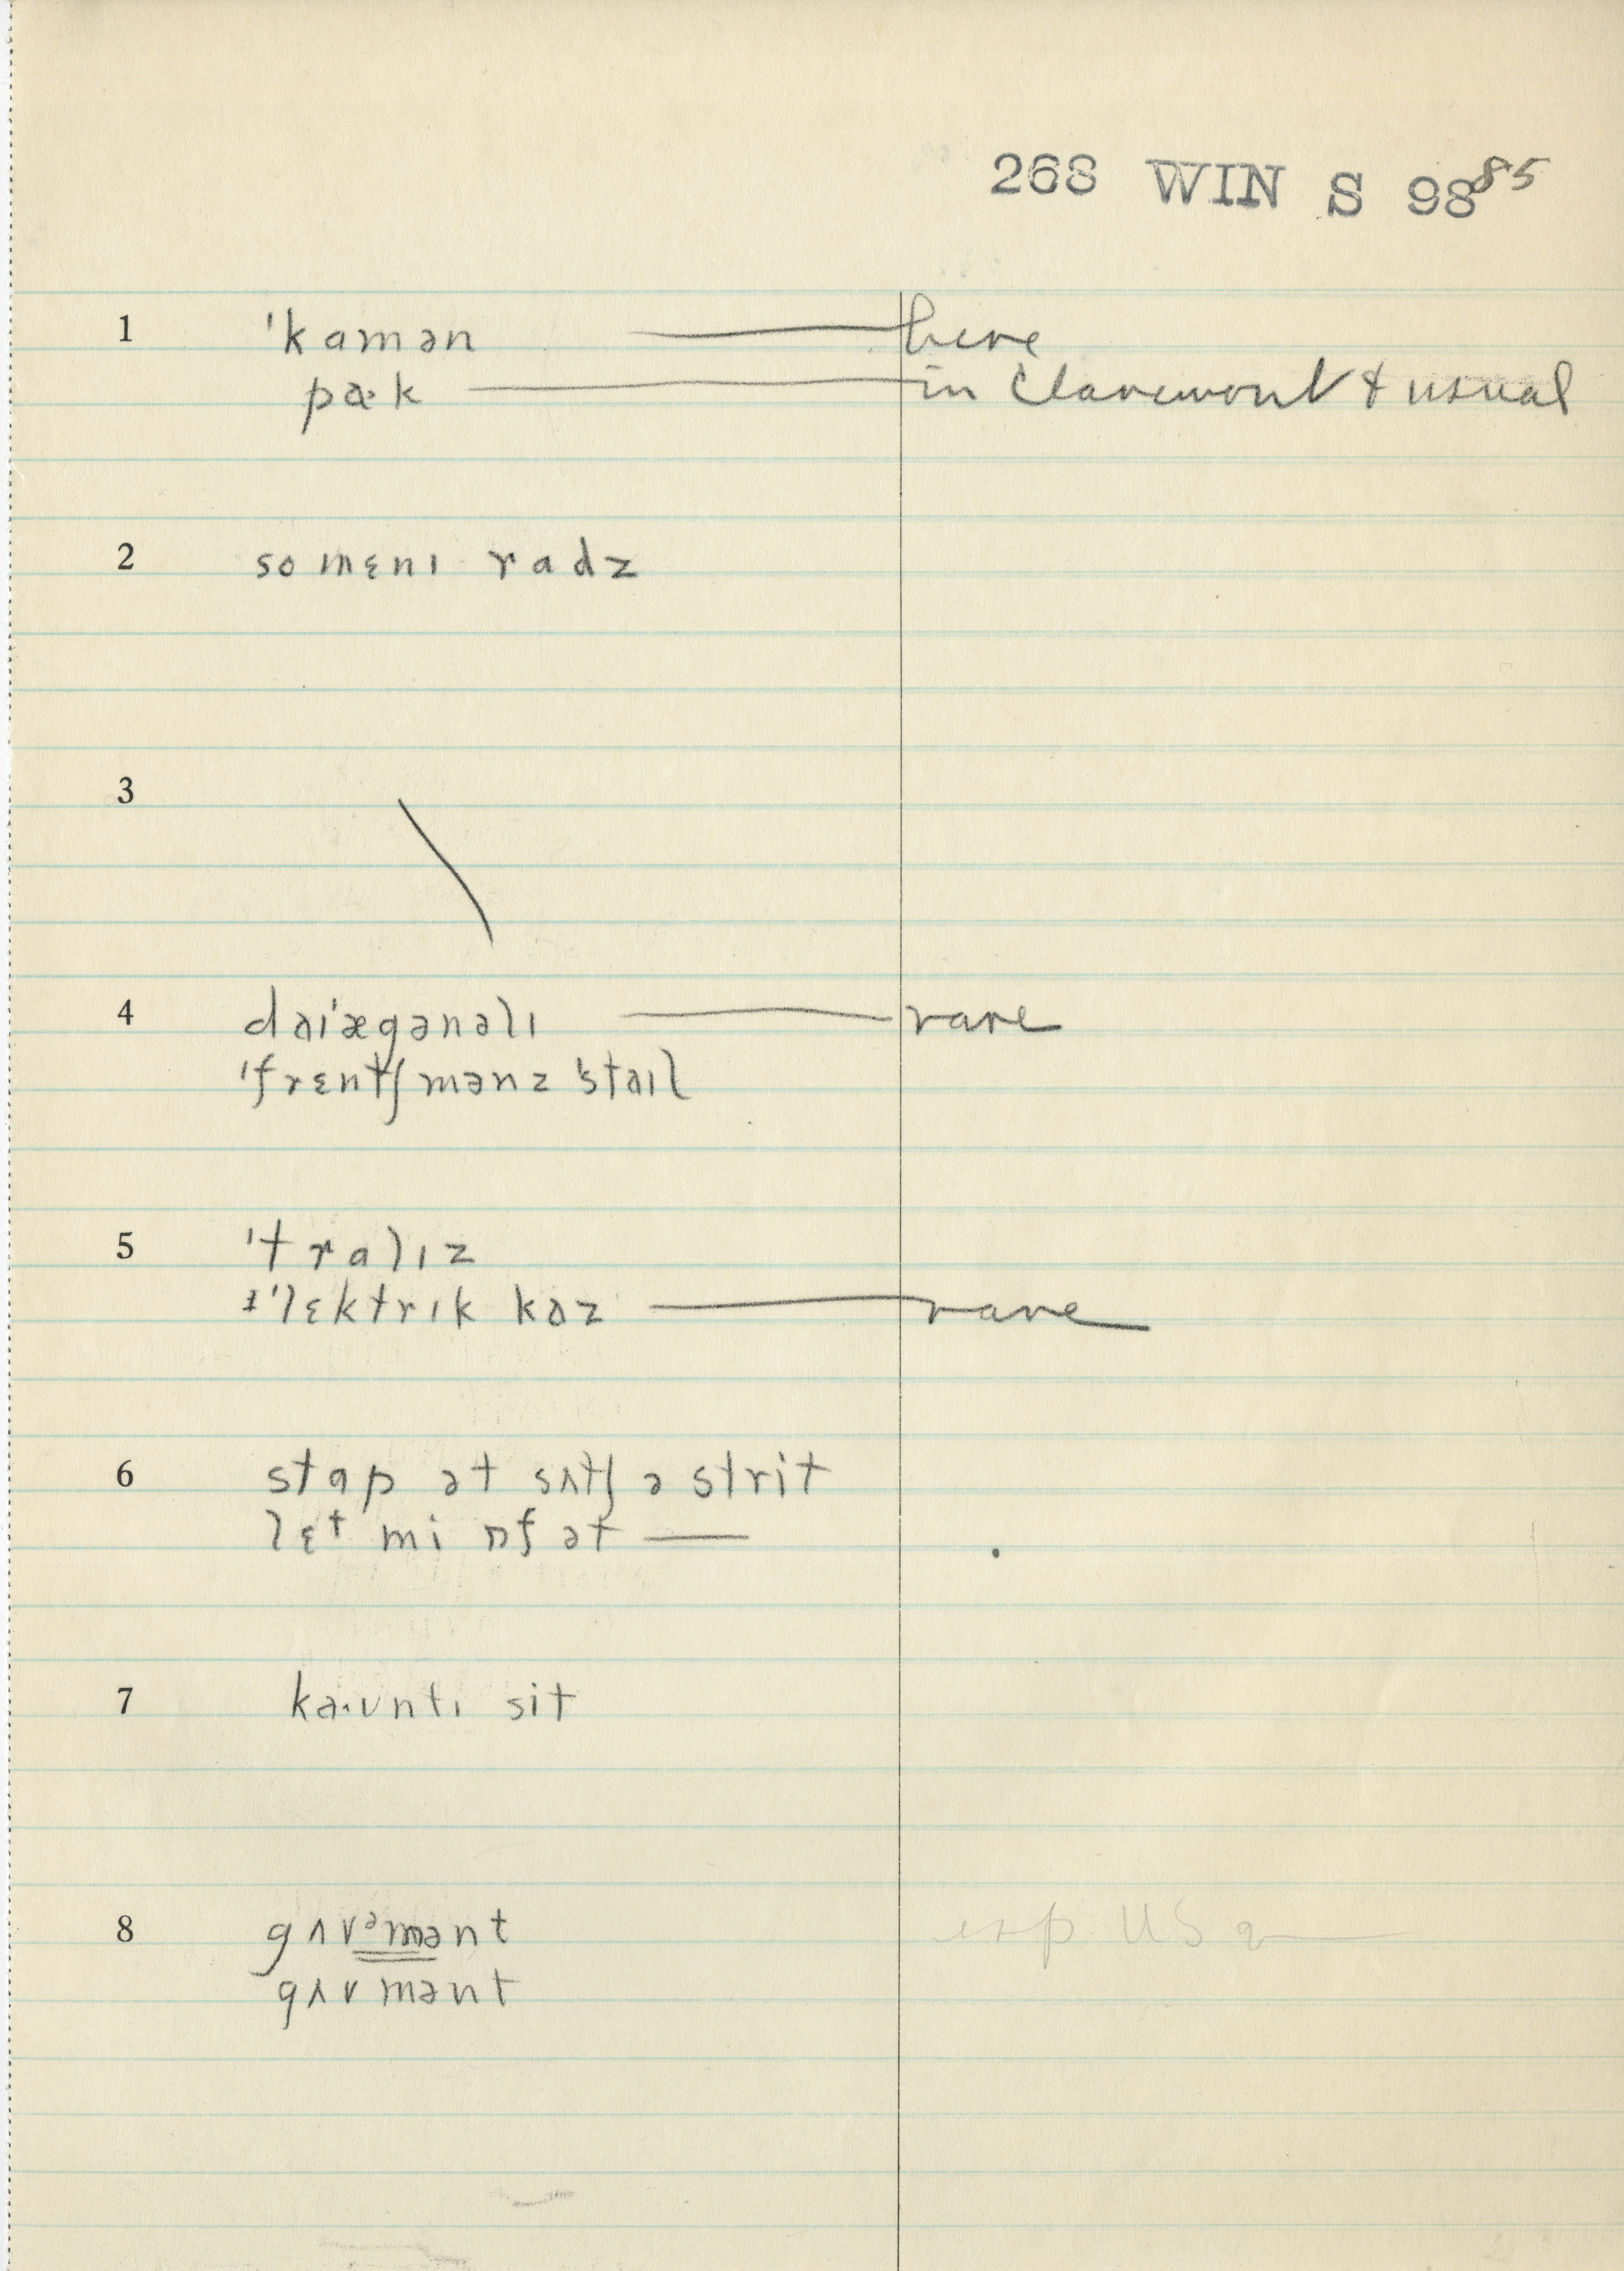 268 WIN S 98 85
1 ˈkɑmən here
pa·k in Claremont & usual
2 so mɛnɪ rɑdz
3
4 daɪˈægənəlɪ rare
ˈfrɛntʃmənz ˈstaɪl
5 ˈtrɑlɪz
ɨˈlɛktrɪk kaz rare
6 stɑp ət sʌtʃ ə strit
lɛt mi ɒf ət
7 ka·ʊntɪ sit
8 gʌvəmənt esp US
gʌvmənt